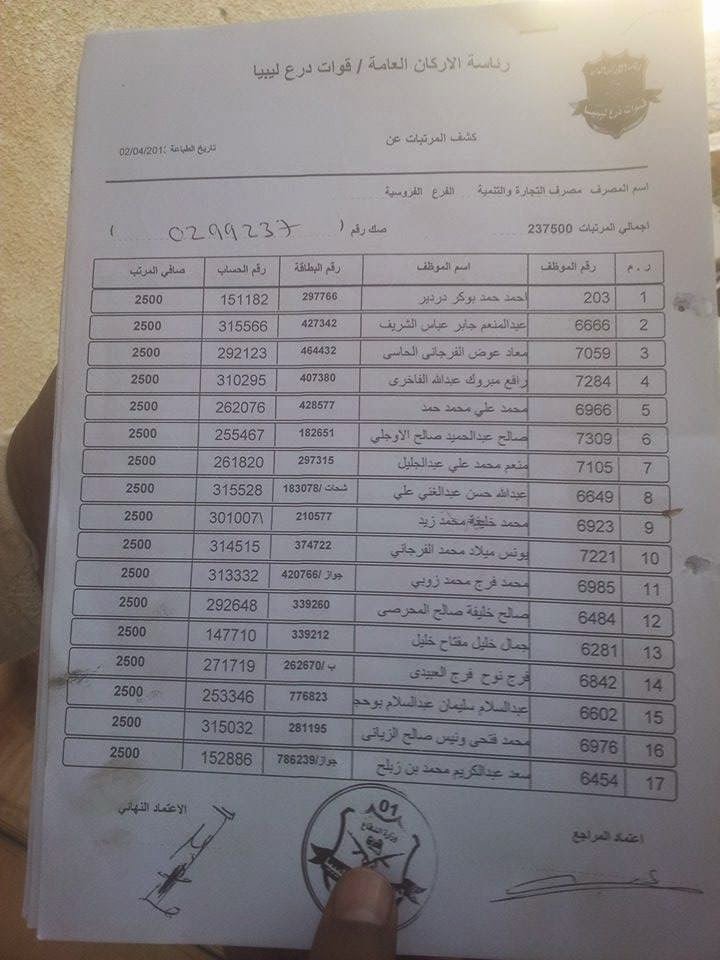 رئاسة الاركان العامة / قوات درع ليبيا
رئاسة الاركان العامة
قوات درع ليبيا
كشف المرتبات عن
تاريخ الطباعة 02/04/201
اسم المصرف مصرف التجارة والتنمية الفرع الفروسية
اجمالي المرتبات 237500 صك رقم ( 0299237 )
ر . م رقم الموظف اسم الموظف رقم البطاقة رقم الحساب صافي المرتب
1 203 احمد حمد بوكر دردير 297766 151182 2500
2 6666 عبدالمنعم جابر عباس الشريف 427342 315566 2500
3 7059 معاد عوض الفرجاني الحاسى 464432 292123 2500
4 7284 رافع مبروك عبدالله الفاخرى 407380 310295 2500
5 6966 محمد علي محمد حمد 428577 262076 2500
6 7309 صالح عبدالحميد صالح الاوجلي 182651 255467 2500
7 7105 منعم محمد علي عبدالجليل 297315 261820 2500
8 6649 عبدالله حسن عبدالغني علي شحات /183078 315528 2500
9 6923 محمد خليفة محمد زيد 210577 301007\ 2500
10 7221 يونس ميلاد محمد الفرجاني 374722 314515 2500
11 6985 محمد فرج محمد زوبي جواز /420766 313332 2500
12 6484 صالح خليفة صالح المحرصى 339260 292648 2500
13 6281 جمال خليل مفتاح خليل 339212 147710 2500
14 6842 فرج نوح فرج العبيدى ب /262670 271719 2500
15 6602 عبدالسلام سليمان عبدالسلام بوحج 776823 253346 2500
16 6976 محمد فتحى ونيس صالح الزيانى 281195 315032 2500
17 6454 سعد عبدالكريم محمد بن زبلح جواز/786239 152886 2500
اعتماد المراجع
الاعتماد النهاني
01
وزارة الدفاع